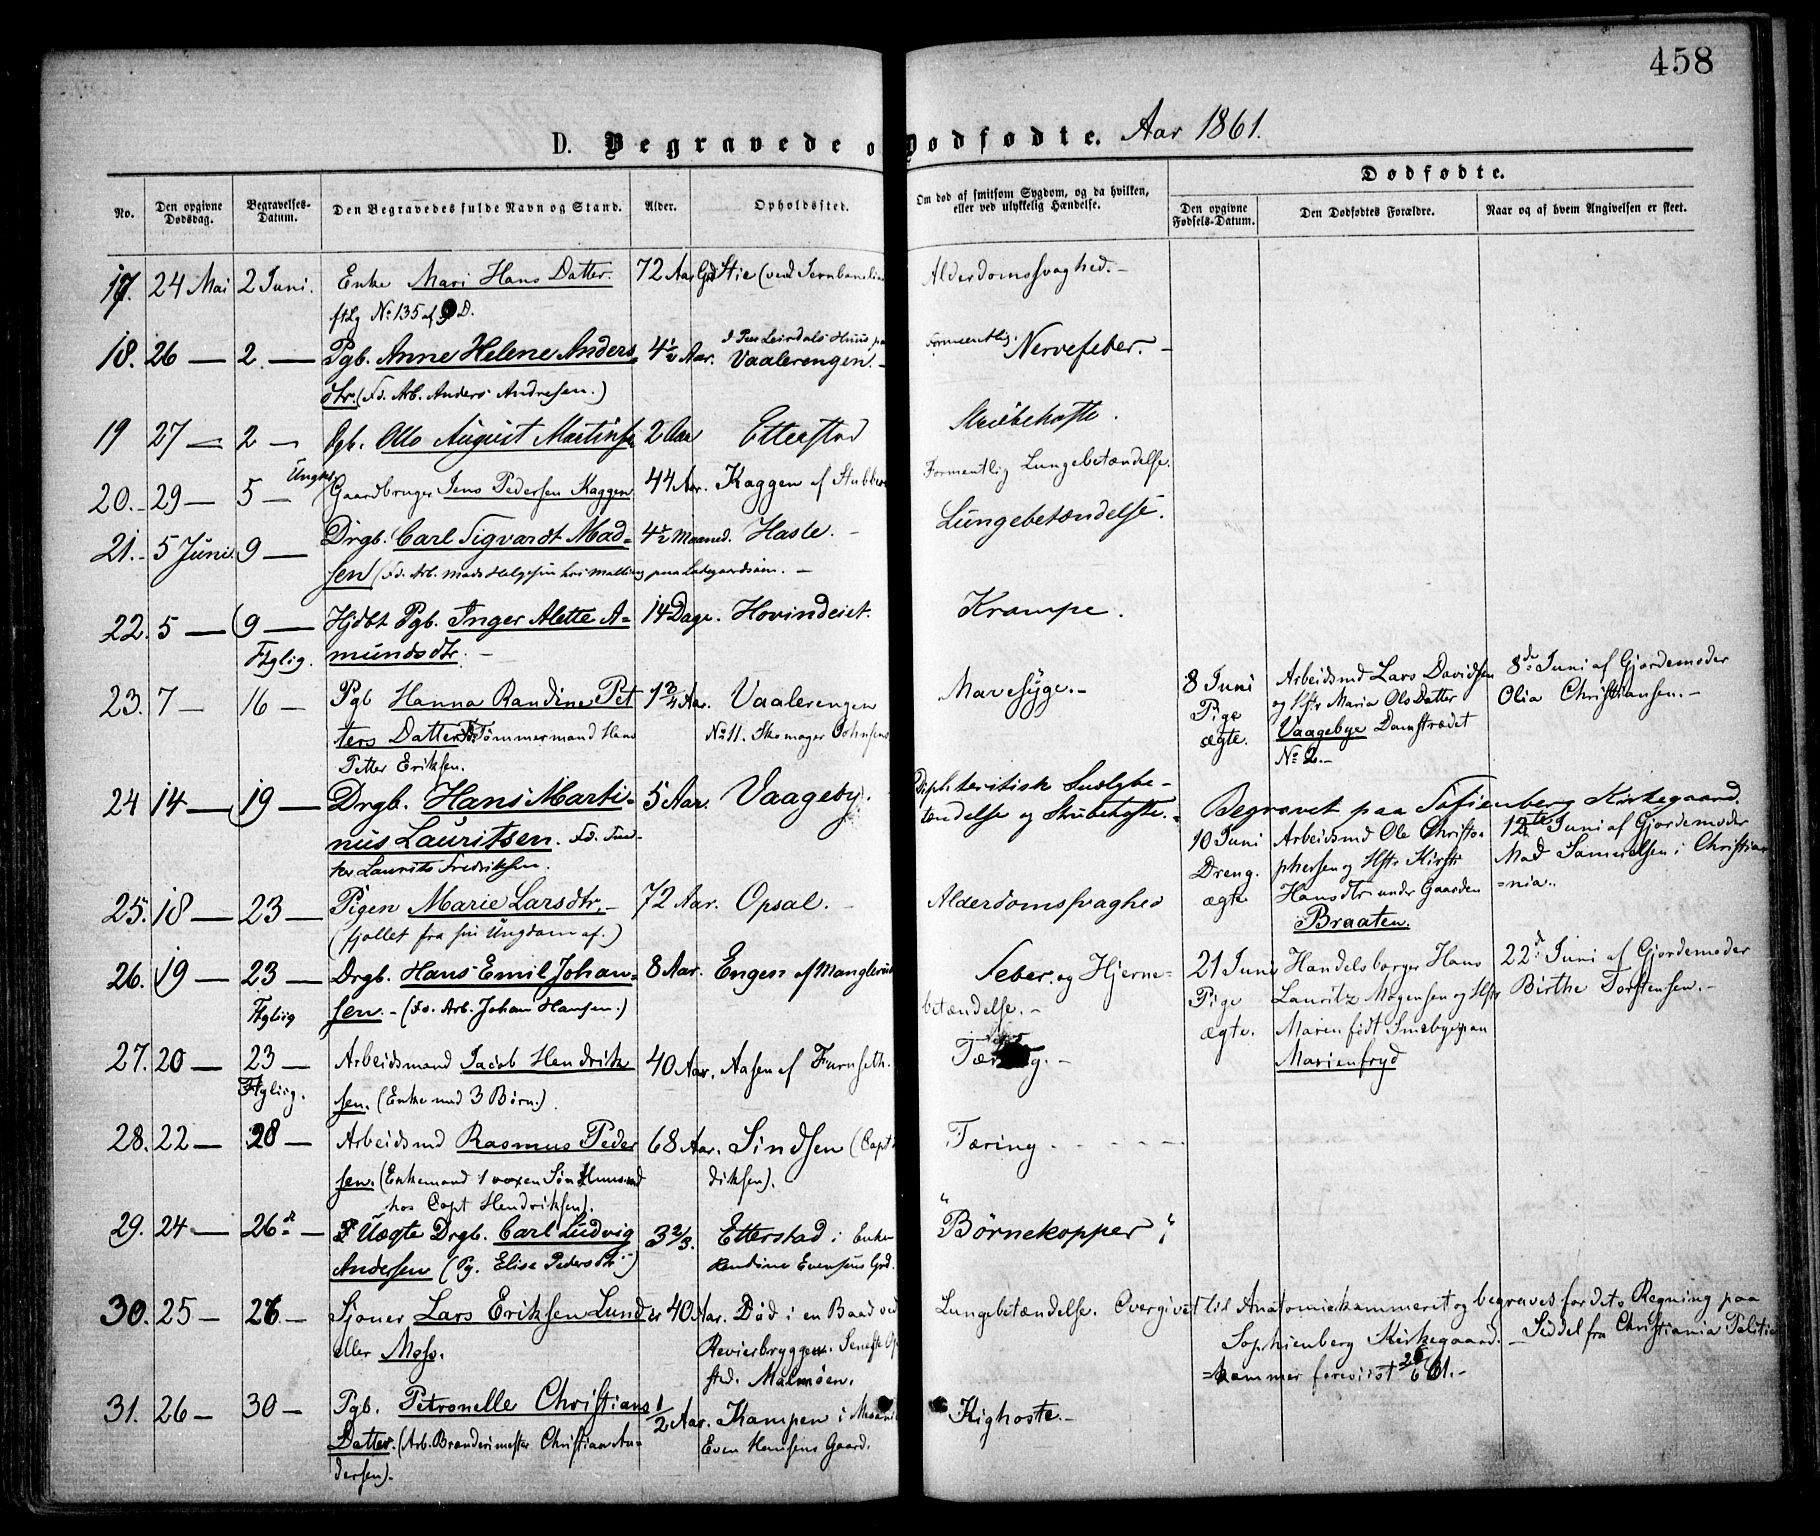 458
D. Begravede o Dodfodte. Aar 1861.
No. Den opgivne Dodsdag. Begravelses-Datum. Den Begravedes fulde Navn og Stand. Alder. Opholdssted. Om dod af smitsom Sygdom, og da hvilken, eller ved ulykkelig Hændelse. Dodfodte.
Den opgivne Fodsels-Datum. Den Dodfodtes Forældre. Naar og af hvem Angivelsen er skeet.
17. 24 Mai 2 Juni. Enke Mari Hans Datter. 72 Aar Stie (ved Jernbanelin Alderdomssvaghed.-
ftLg No 135 af D.
18. 26 — 2. — Pgb. Anne Helene Anders 4½ Aar. Vaalerengen.- Formentlig Nervefeber.-
dtr. (Fd. Arb. Anders Andresen.)
19 27 — 2 — Pgb. Otto August Martins 2 Aar Etterstad Strübehoste.
20.- 29 — 5 — Ungk Gaardbruger Jens Pedersen Kaggen 44 Aar. Kaggen af Stubber Formentlig Lungebetændelse.
21.- 5 Juni. 9 — Drgb. Carl Sigvardt Mad= 4½ Maaned. Hasle.- Lungebetændelse.
sen (Fd. Arb. Mads Helgesen hos Malling paa Ladegaardsøen.-
22. 5 — 9 — Hjdbt Pgb. Inger Alette A= 14 Dage. Hovindeiet. Krampe.
Ftglig. mundsdtr.-
23. 7 — 16 — Pgb Hanna Randine Pet 1¾ Aar. Vaalerengen Mavesyge.- 8 Juni Arbeidsmd Lars Davidsen 8de Juni af Gjordemoder
Pige og Hstr Maria Ols Datter Olia Christiansen.-
ters Datter Fd. Tømmermand Hans No 11. Skomager Johnsens ægte. Vaagebye Damstrædet
Petter Eriksen. No 2.-
24 14 — 19 — Drgb. Hans Marti= 5 Aar. Vaageby. Diphteritisk Svælgbe=
nus Lauritsen. Fd. tændelse og Strübehoste. Begravet paa Sofienberg Kirkegaard.
Laurits Fredriksen. 10 Juni Arbeidsmd Ole Christo= 12te Juni af Gjordemoder
Dreng. phersen og Hstr Kirsti Mad Samuelsen i Christia
ægte Hansdtr under Gaarden =nia.
25. 18 — 23 — Pigen Marie Larsdtr.- 72 Aar. Opsal.- Alderdomssvaghed Braaten.
(fjollet fra sin Ungdom af.)
26. 19 — 23 — Drgb. Hans Emil Johan= 8 Aar. Engen af Manglerud Feber. og Hjerne= 21 Juni Handelsborger Hans 22d Juni af Gjordemoder
Ftgliig sen.- (Fd. Arb. Johan Hansen.) betændelse.- Pige Lauritz Mogensen og Hstr Birthe Torstensen.-
ægte. Maren født
27. 20 — 23 — Arbeidsmand Jacob Hendrik 40 Aar. Aasen af Furuseth. Tæring.- Marienfryd
Ftgliig. sen. (Enke med 3 Børn.)
28. 22 — 28 — Arbeidsmd Rasmus Peder 68 Aar. Sindsen (Capt Tæring.
sen. (Enkemand 1 voxen Søn diksen).
hos Capt Hendriksen).
29. 24 — 26d — Uægte Drgb. Carl Ludvig 3⅔. Etterstad i Enke "Børnekopper"
Andersen (Pg. Elise Pedersdtr.) Randine Evensens Grd.
30. 25 — 26 — Sjøner Lars Eriksen Lunder 40 Aar. Død i en Baad ved Lungebetændelse. Overgivet til Anatomiekammeret og begraves for dets Regning paa
eller Moss. Revierbryggen. Seneste Op Sophienberg Kirkegaard.- Seddel fra Christiania Politie
std. Malmøen. =kammer foreviist 26/6 61.-
31. 26 — 30 — Pgb. Petronelle Christians ½ Aar. Kampen i Kighoste.-
Datter. (Arb. Brænderimester Christian An= Even Hansens Gaard.
dersen).